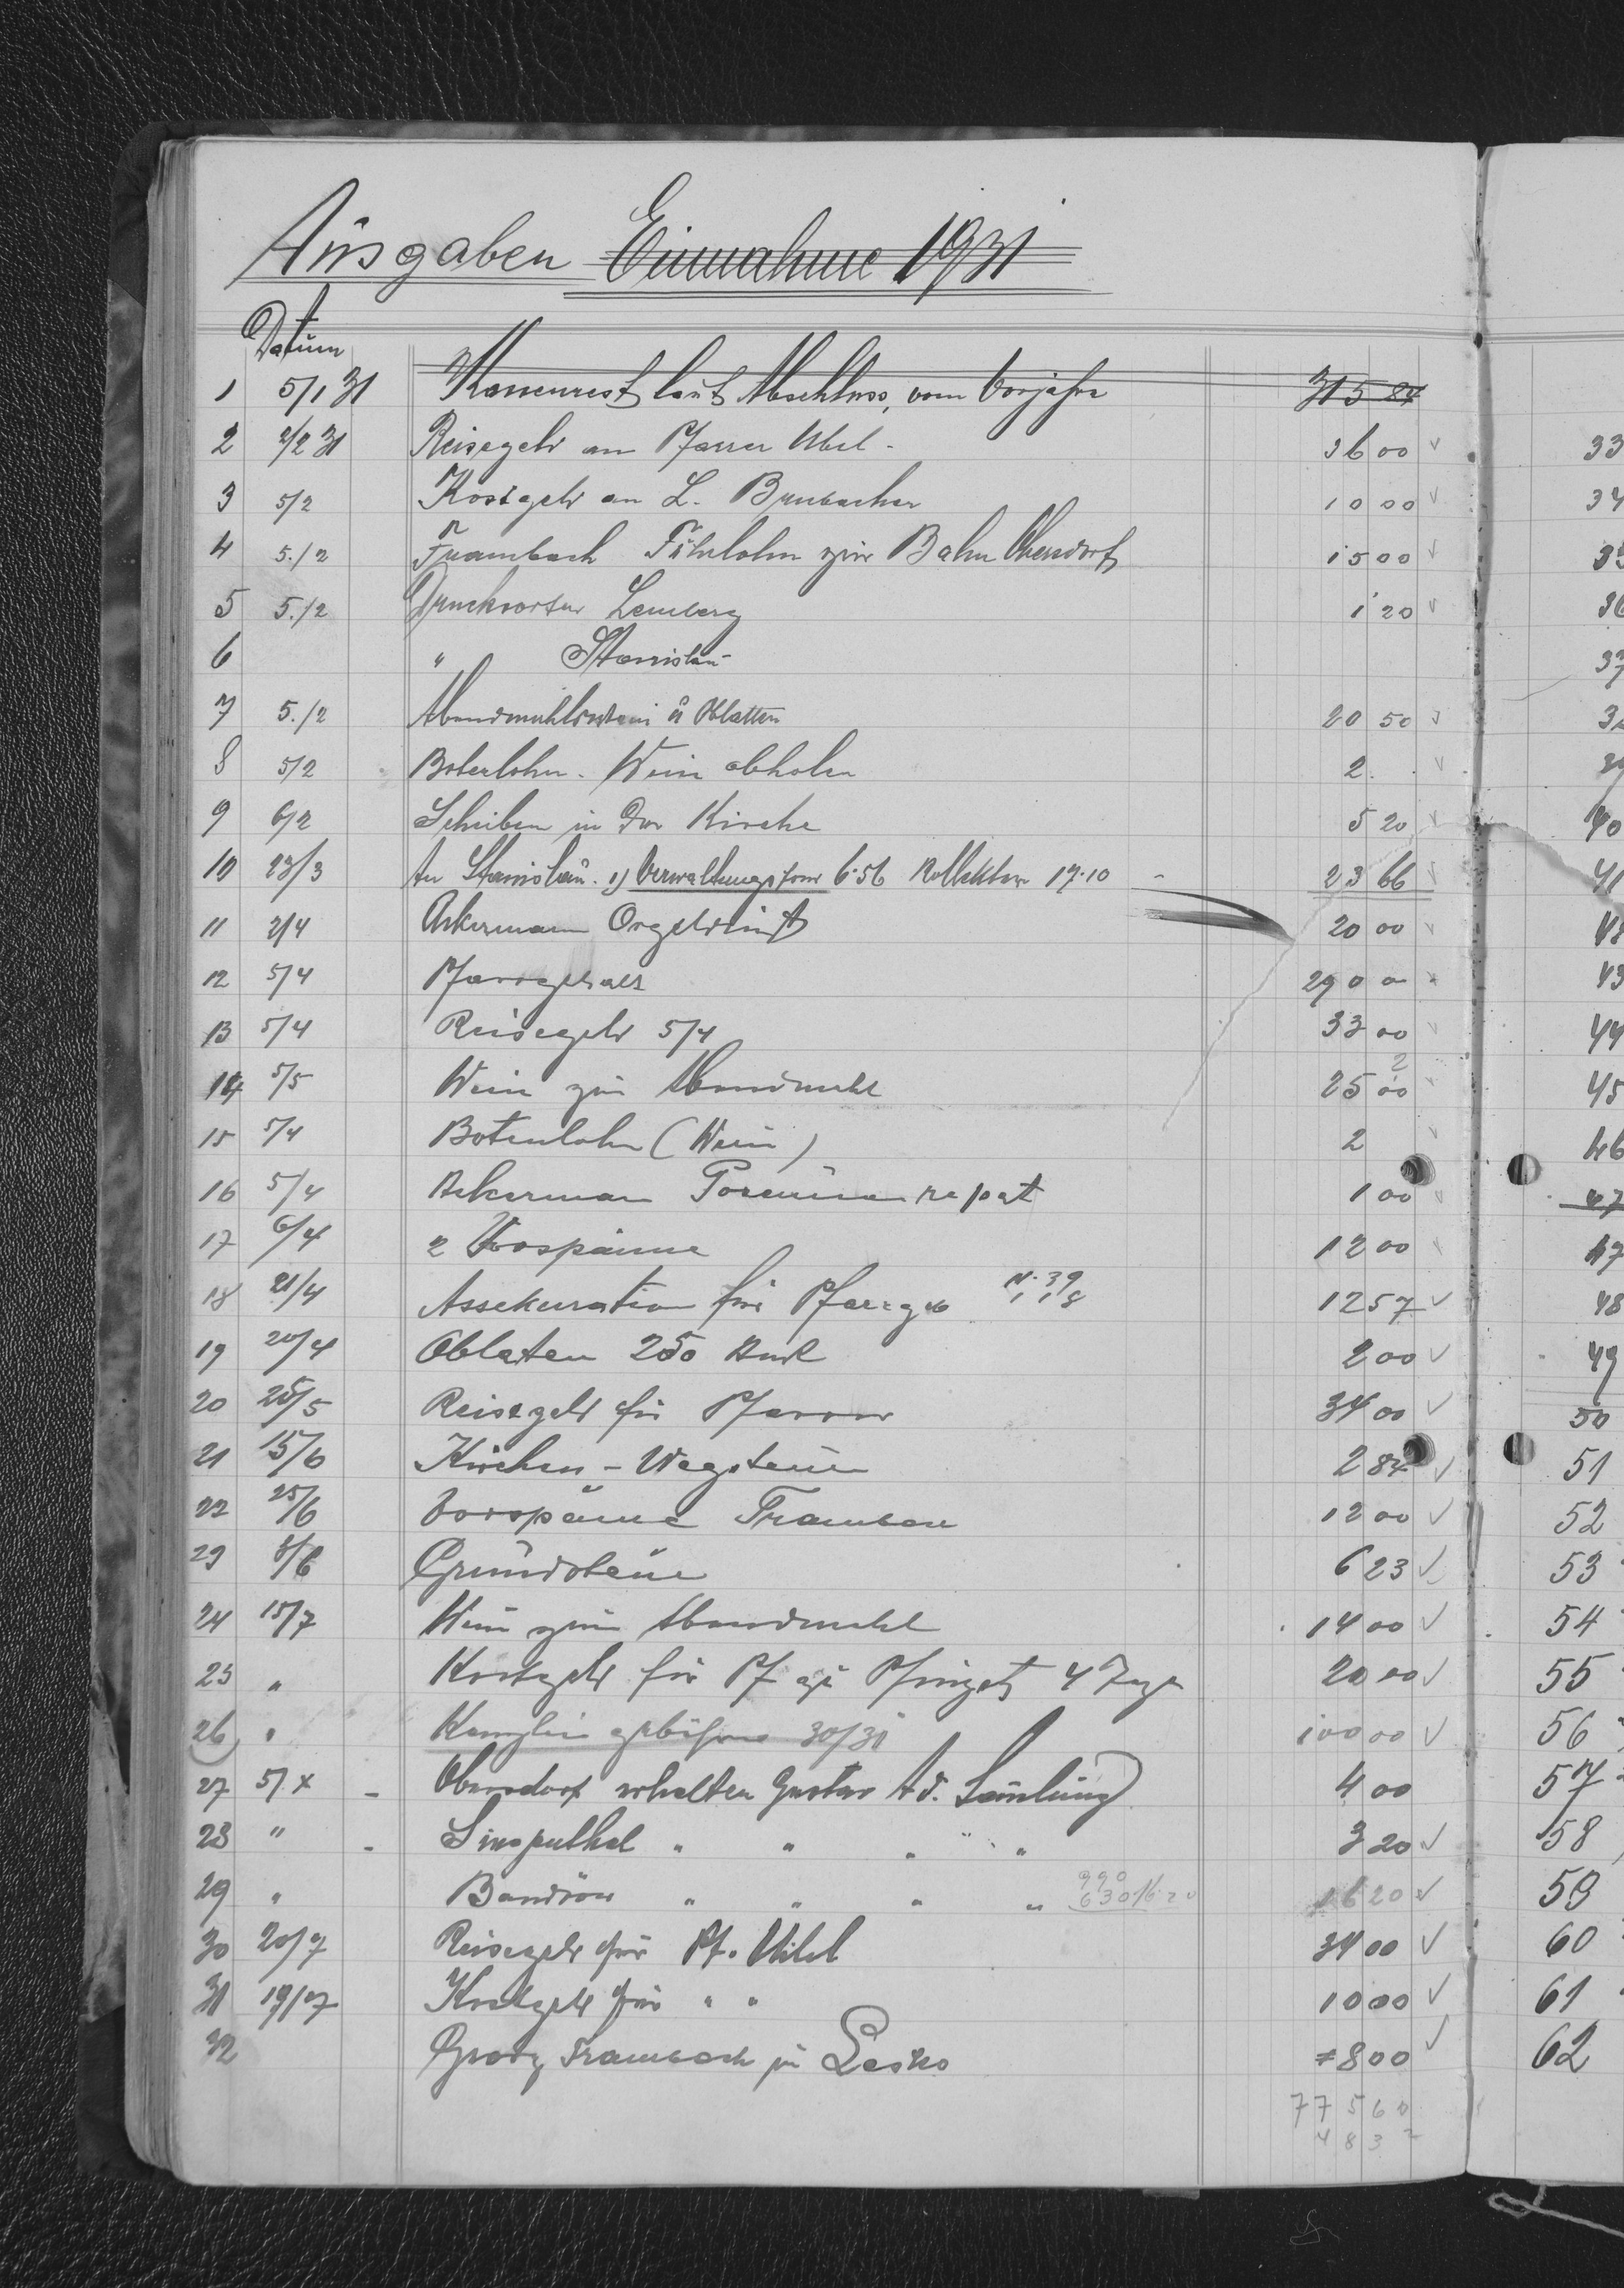 Ausgaben Einnahme 1931
Datum
1 5/1 31 Kassenrest laut Abschluss, vom Vorjahre 315 84
2 2/2 31 Reisegeld an Pfarrer 36 00 ✓
3 5/2 Kostgeld an L. Brubacher 10 00 ✓
4 5./2 Trambach Fuhrlohn zur Bahn Obersdorf 15 00 ✓
5 5./2 Lemberg 1 20 ✓
6 " Stanislau
7 5./2 Abendmahlswein u Oblatten 20 50 ✓
8 5/2 Botenlohn. Wein abholen 2. ✓
9 6/2 Scheiben in der Kirche 5 20 ✓
10 23/3 An Stanislau. 1) Verwaltungsfond 6.56 Kollekten 17.10 - 23 66 ✓
11 2/4 Ackermann Orgeldienst 20 00 ✓
12 5/4 Pfarrgehalt 290 0
13 5/4 Reisegeld 5/4 33 00 ✓
14 5/5 Wein zum Abendmahl 25 00
15 5/4 Botenlohn (Wein) 2 ✓
16 5/4 Ackerman repat 1 00 ✓
17 6/4 2 Vorspänne 12 00 ✓
18 21/4 Assekuration für 12 57 ✓
19 20/4 Oblaten 250 2 00 ✓
20 25/5 Reisegeld für Pfarrer 34 00 ✓
21 15/6 Kirchen - Wegsteuer 2 84 ✓
22 25/6 Vorspänne 12 00 ✓
23 8/6 Grundsteuer 6 23 ✓
24 15/7 Wein zum Abendmahl 14 00 ✓
25 " Kostgeld für Pf zu Pfingst 4 Tage 20 00 ✓
26 " Kanzlei gebühren 30/31 100 00 ✓
27 5/X - Obersdorf erhalten Gustav Ad. Samlung 4 00
28 " - " " " " 3 20 ✓
29 " Bandrow " " " " 990 630/16 20 16 20 ✓
30 20/7 Reisegeld für Pf. 34 00 ✓
31 19/7 Kostgeld für " " 10 00 ✓
32 Georg Trambach Lesko 8 00 ✓
77 5 6
4 8 3
33
34
36
37
40
41
43
44
45
46
47
47
48
49
50
51
52
53
54
55
56
57
58
59
60
61
62